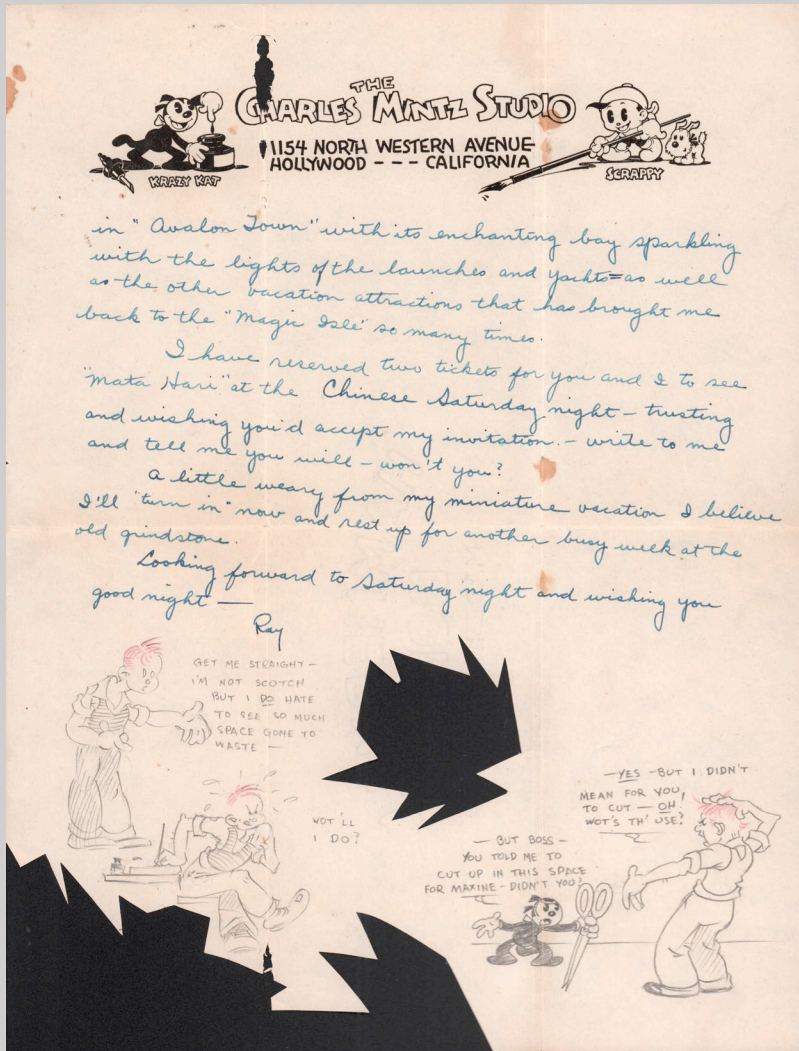 THE
CHARLES MINTZ STUDIO
1154 NORTH WESTERN AVENUE
HOLLYWOOD --- CALIFORNIA
KRAZY KAT
SCRAPPY
in "Avalon Town" with its enchanting bay sparkling
with the lights of the launches and yachts = as well
as the other vacation attractions that has brought me
back to the "Magic Isle" so many times.
I have reserved two tickets for you and I to see
"Mata Hari" at the Chinese Saturday night - trusting
and wishing you'd accept my invitation. - write to me
and tell me you will - won't you?
A little weary from my miniature vacation I believe
I'll "turn in" now and rest up for another busy week at the
old grindstone.
Looking forward to Saturday night and wishing you
good night —
Ray
GET ME STRAIGHT -
I'M NOT SCOTCH
BUT I DO HATE
TO SEE SO MUCH
SPACE GONE TO
WASTE —
WOT'LL
I DO?
— BUT BOSS -
YOU TOLD ME TO
CUT UP IN THIS SPACE
FOR MAXINE - DIDN'T YOU?
— YES - BUT I DIDN'T
MEAN FOR YOU,
TO CUT — OH!
WOT'S TH' USE?